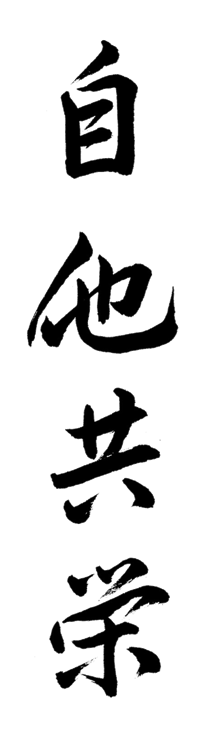 自他共栄